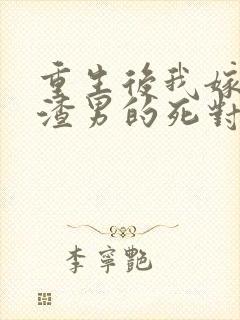 重生後我嫁
渣男的死對
李寧艷